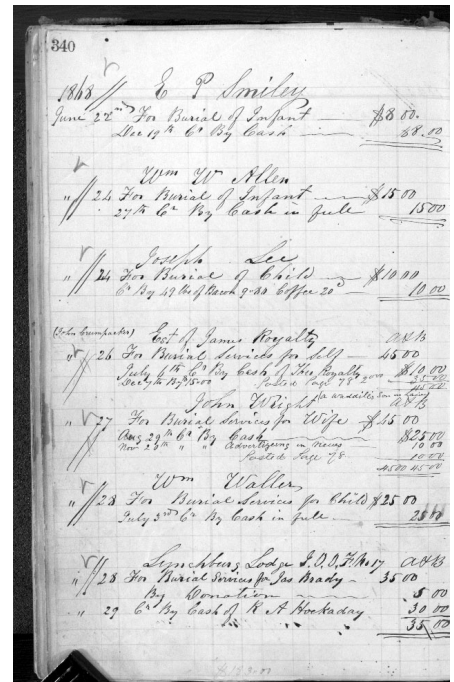 340
1868 // E P Smiley
June 22nd For Burial of Infant — $8 00.
Dec 19th Cr By Cash — $8.00
Wm W Allen
" // 24 For Burial of Infant — $15 00
27th Cr By Cash in full 15 00
Joseph Lee
" // 24 For Burial of Child — $10 00
Cr By 49 lbs of Bacon Coffee 10 00
(John Crumpacker) Est of James Royalty A&B
" // 26 For Burial Services for Self — 45 00
July 6th Cr By Cash of Royalty $10 00
Dec 7th By 15.00 Posted Page 78 35 00
45 00
John Wright A&B
" // 27 For Burial Services for Wife — $45 00
Aug 29th Cr By Cash — $25 00
Nov 25th " " Advertizing in News 10 00
Posted Page 78 10 00
45 00 45 00
Wm Waller
" // 28 For Burial Services for Child $25 00
July 3rd Cr By Cash in full — 25 00
Lynchburg Lodge I.O.O.F. No 17 A&B
" // 28 For Burial Services for Jas Brady — 35 00
By Donation — 5 00
" 29 Cr By Cash of R A Hockaday 30 00
35 00